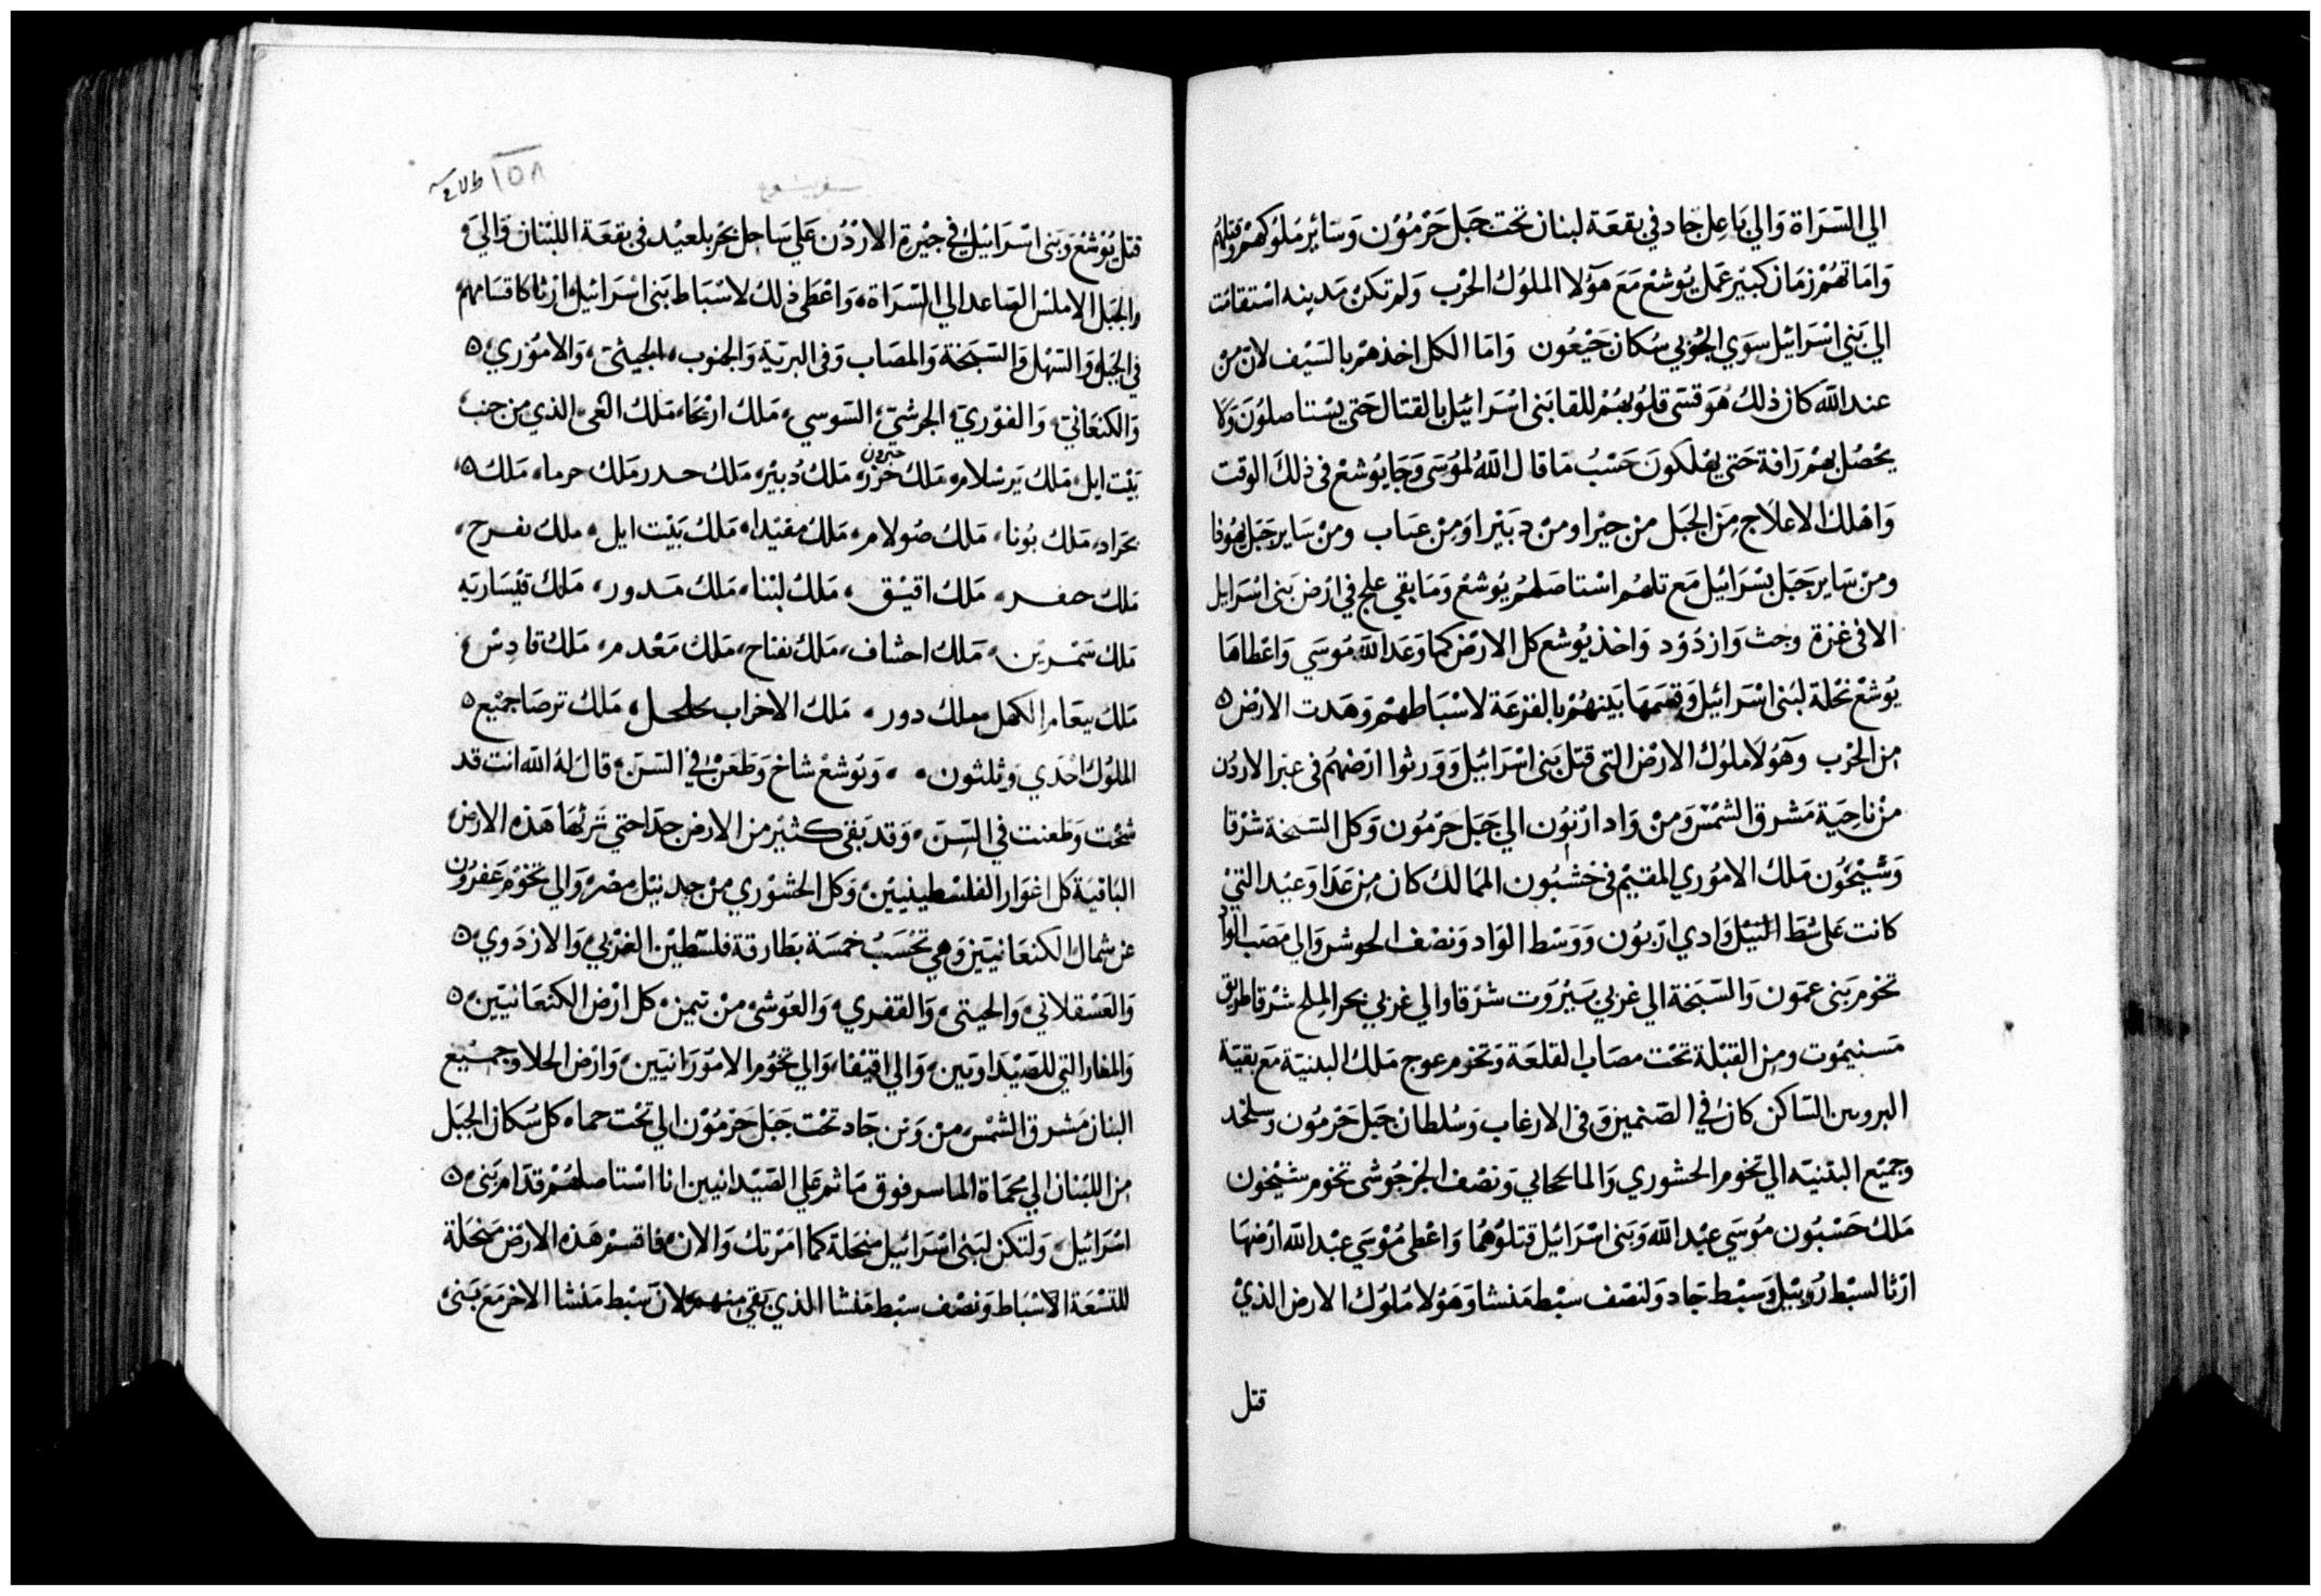 الي السَرَاة وَالي بَاعِل جاد في بقعَة لبنان تحت جبَل حَرْمُوْن وَسَائِر مَلوُكهمْ وقتلهُم
وَامَاتهُمْ زمَان كبيَر عَمَل يُوشعْ مَعَ هَؤلا الملوُك الحْرب وَلم تكنْ مَدينه اسْتقامت
الي بَني اسْرَائيْل سَوَي الحُوْيي سُكان جَبعُون وَامَا الكل اخذهمْ بالسَيْف لانّ منْ
عند الله كان ذلك هُوَ قسَى قلوُبهُمْ للقا بَنى اسْرَائيْل بالقتال حَتي يسْتاصلوُنَ وَلا
يحْصُل بهمْ رَافة حَتي يهْلكونَ حَسْبُ مَا قال اللهُ لموُسَى وَجَا يُوشعْ في ذلكَ الوقت
وَاهْلك الاعلَاج مِنَ الجَبَل من حبْرا ومنْ دبَيْرا وَمِنْ عنَاب ومنْ سَاير جَبَل يهُوذا
ومنْ سَاير جَبَل بسْرَائيْل مَع تلهمُ اسْتاصَلهُمْ يُوشعْ وَمَا بقي علج في ارْض بَنى اسْرَايل
الا في غزة وجث وَازدَوْد وَاخذ يُوشع كل الارْض كما وَعَد الله مُوسَى وَاعْطاهَا
يُوشعْ نحْلة لبَنى اسْرَائيل وَقسَمَهَا بَينهُمْ بالقرْعَة لاسْبَاطهمْ وَهَدت الارْض
مِن الحْرب وَهَؤلا ملوُك الارْض التي قتَل بَني اسْرَائيْل وَوَرثوا ارْضهُم في عبْر الاردُن
منْ ناحِيَة مَشرق الشمْسْ وَمنْ وَاد ارْنوُن الي جَبَل حَرْمُون وَكل السَبخة شرْقا
وَشيْحُوْن مَلك الاموُري المقيْم في خشبُون الممَالك كان مِن عَدَا وَعيْد التيْ
كانت عَلى شط النيْل وَادي ارْبوُن وَوَسْط الوَاد وَنصْف الحوشر وَالي مَصَب الوَاد
تخوم بَنى عمَوْن وَالسَبَخة الي غربي بَيْرُوَت شرْقا وَالي غربي بحر المِلح شرْقا طريق
مَسنيموُت ومِن القبْلة تحْت مصَاب القلعَة وَتخوم عوج مَلك البثنيَة مَع بقيَة
السَاكن كان في الصَنمين وَفى الارغاب وَسُلطان جَبَل حَرْمُوْن وسلخد
وجميْع البثنيَه الي تخوم الحشوري وَالماكحاني وَنصْف الجرْجُوشي تخوم شيْحون
مَلك حَسْبُون مُوسَي عبْد الله وَبَنى اسْرَائيْل قتلوُهُمَا وَاعْطي مُوْسَي عبْد الله ارْضهَا
ارْثا لسبْط رُوبيْل وَسبْط جَاد وَلنصْف سبْط مَنشا وَهَوُلا مُلوُك الارض الذيْ
قتل
١٥٨
قتل يُوْشعْ وَبَنى اسْرَائيْل في جيْرة الارْدُن عَلي سَاحِل بحْر بلعيْد في بقعَة اللبْنان وَالي
وَالجَبَل الاملسْ الصَاعد الي السْرَاة وَاعْطي ذلكَ لاسْبَاط بَنى اسْرَائيْل ارْثا كاقسَامهمْ
في الجَبَل وَالسَهْل وَالسَبَخة وَالمصَاب وَفى البريَة وَالجنوب الحيثيَ وَالاموُري
وَالكنعَانيَ وَالفوْريَ الجرشيَ السَوسي مَلك ارْيحَا مَلك الغى الذي من جنب
بَيْت ايل مَلك يَرسْلام مَلك حَزر حبرون مَلك دُبَيْر مَلك حدر مَلك حرما مَلك
بحَراد مَلك بُونا مَلك ضُولام مَلك مقيْدا مَلك بَيْت ايل ملك نفرح
مَلك حفر مَلك اقيْق مَلك لبْنا مَلك مَدور مَلك قيْسَاريَه
مَلك شمْرين مَلك احشاف مَلك نفتاح مَلك مَعْدم مَلك قادِسْ
مَلك يبعَام الكهل ملك دور مَلك الاخراب مَلك ترصَا جميْع
الملوُك احْدَي وَثلثون وَيُوشعْ شاخ وَطعَن في السَن قال لهُ الله انت قد
شخت وَطعنت في السِن وَقد بَقي كثيْر من الارض جدَا حتي ترثهَا هَذه الارض
البَاقيَة كل اغوَار الفلسْطينيَيْن وَكل الحشوْري منْ حد نيْل مصْر وَالي تخوْم عَفرُون
عن شمال الكنعَانيَين وَهي تحْسَبُ خمسَة بطارقة فلسْطيْن الغزبي وَالازدَوي
وَالعَسْقلاني وَالحيتي وَالقفري وَالعَوشي منْ تيمن كل ارْض الكنعَانيَين
وَالمغار التي للصَيْداويَين وَالي اقيْقا وَالي تخوُم الاموْرَانيَين وَارْض الحلا وجميْع
البنان مَشرق الشمْس من وَنن جَاد تحْت جَبَل حَرْمُوْن الي تحْت حماه كل سَكان الجبَل
مِن اللبْنان الي محمَاة الماسر فوق مَا ثم عَلي الصَيْدانيين انا اسْتاصلهُمْ قدَام بَني
اسْرَائيْل وَلتكن لبَنى اسْرَائيل منحَلة كما امَرْتك وَالان فاقسمْ هَذه الارْض منحَلة
للتسْعَة الاسْبَاط وَنصْف سبْط مَنشا الذي بَقي منهمْ لانّ سبْط مَنشا الاخر مَع بَنى